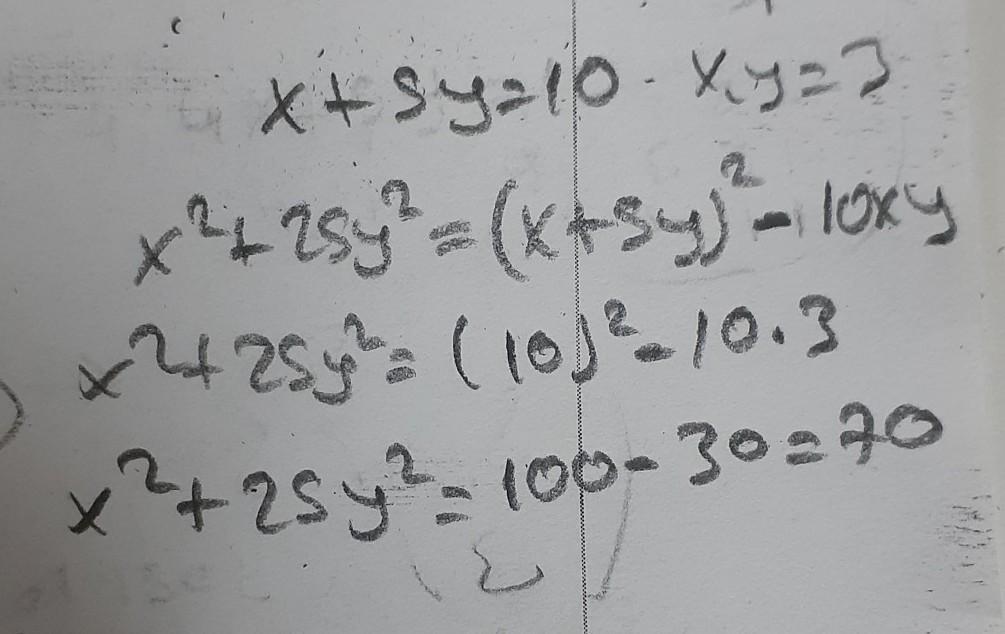 x + 5y = 10 - x.y = 3
x² + 25y² = (x + 5y)² - 10xy
x² + 25y² = (10)² - 10.3
x² + 25y² = 100 - 30 = 70